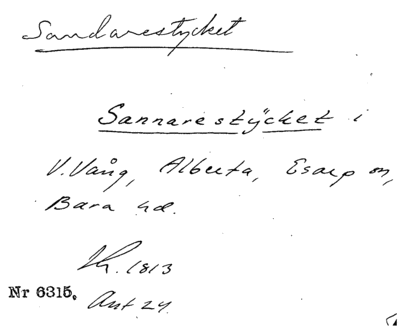 Sandarestycket
Sannarestÿcket i
V. Vång, Alberta, Esarp sn,
Bara hd.
1813
Nr 6315. Ant 24.